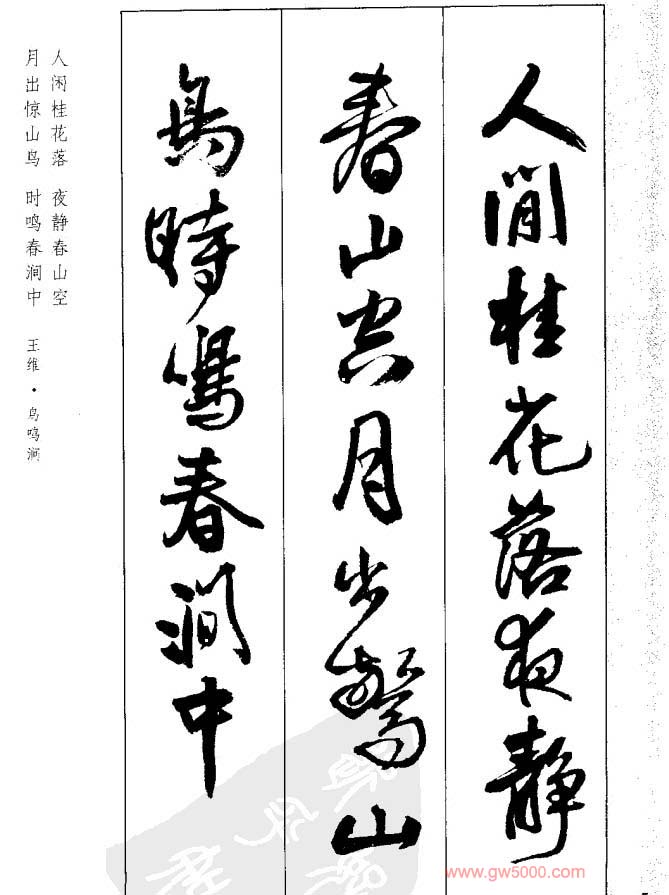 人閒桂花落夜靜
春山空月出驚山
鳥時鳴春澗中
人闲桂花落 夜静春山空
月出惊山鸟 时鸣春涧中 王维·鸟鸣涧
www.gw5000.com